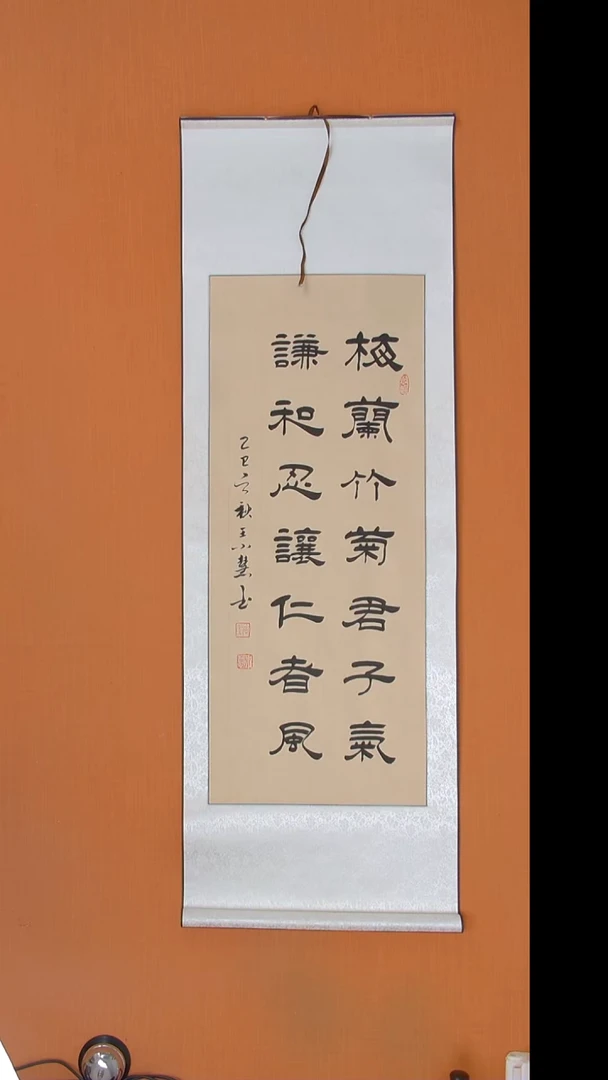 梅蘭竹菊君子氣
謙和忍讓仁者風
乙巳之秋王小慧書